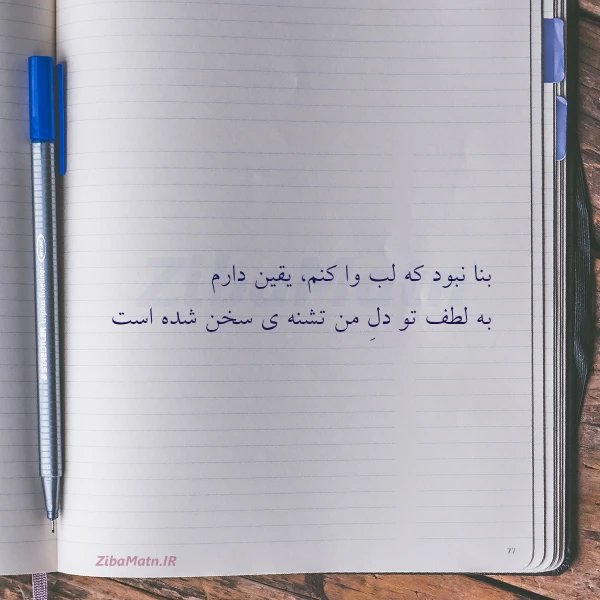 بنا نبود که لب وا کنم، یقین دارم
به لطف تو دلِ من تشنه ی سخن شده است
ZibaMatn.IR